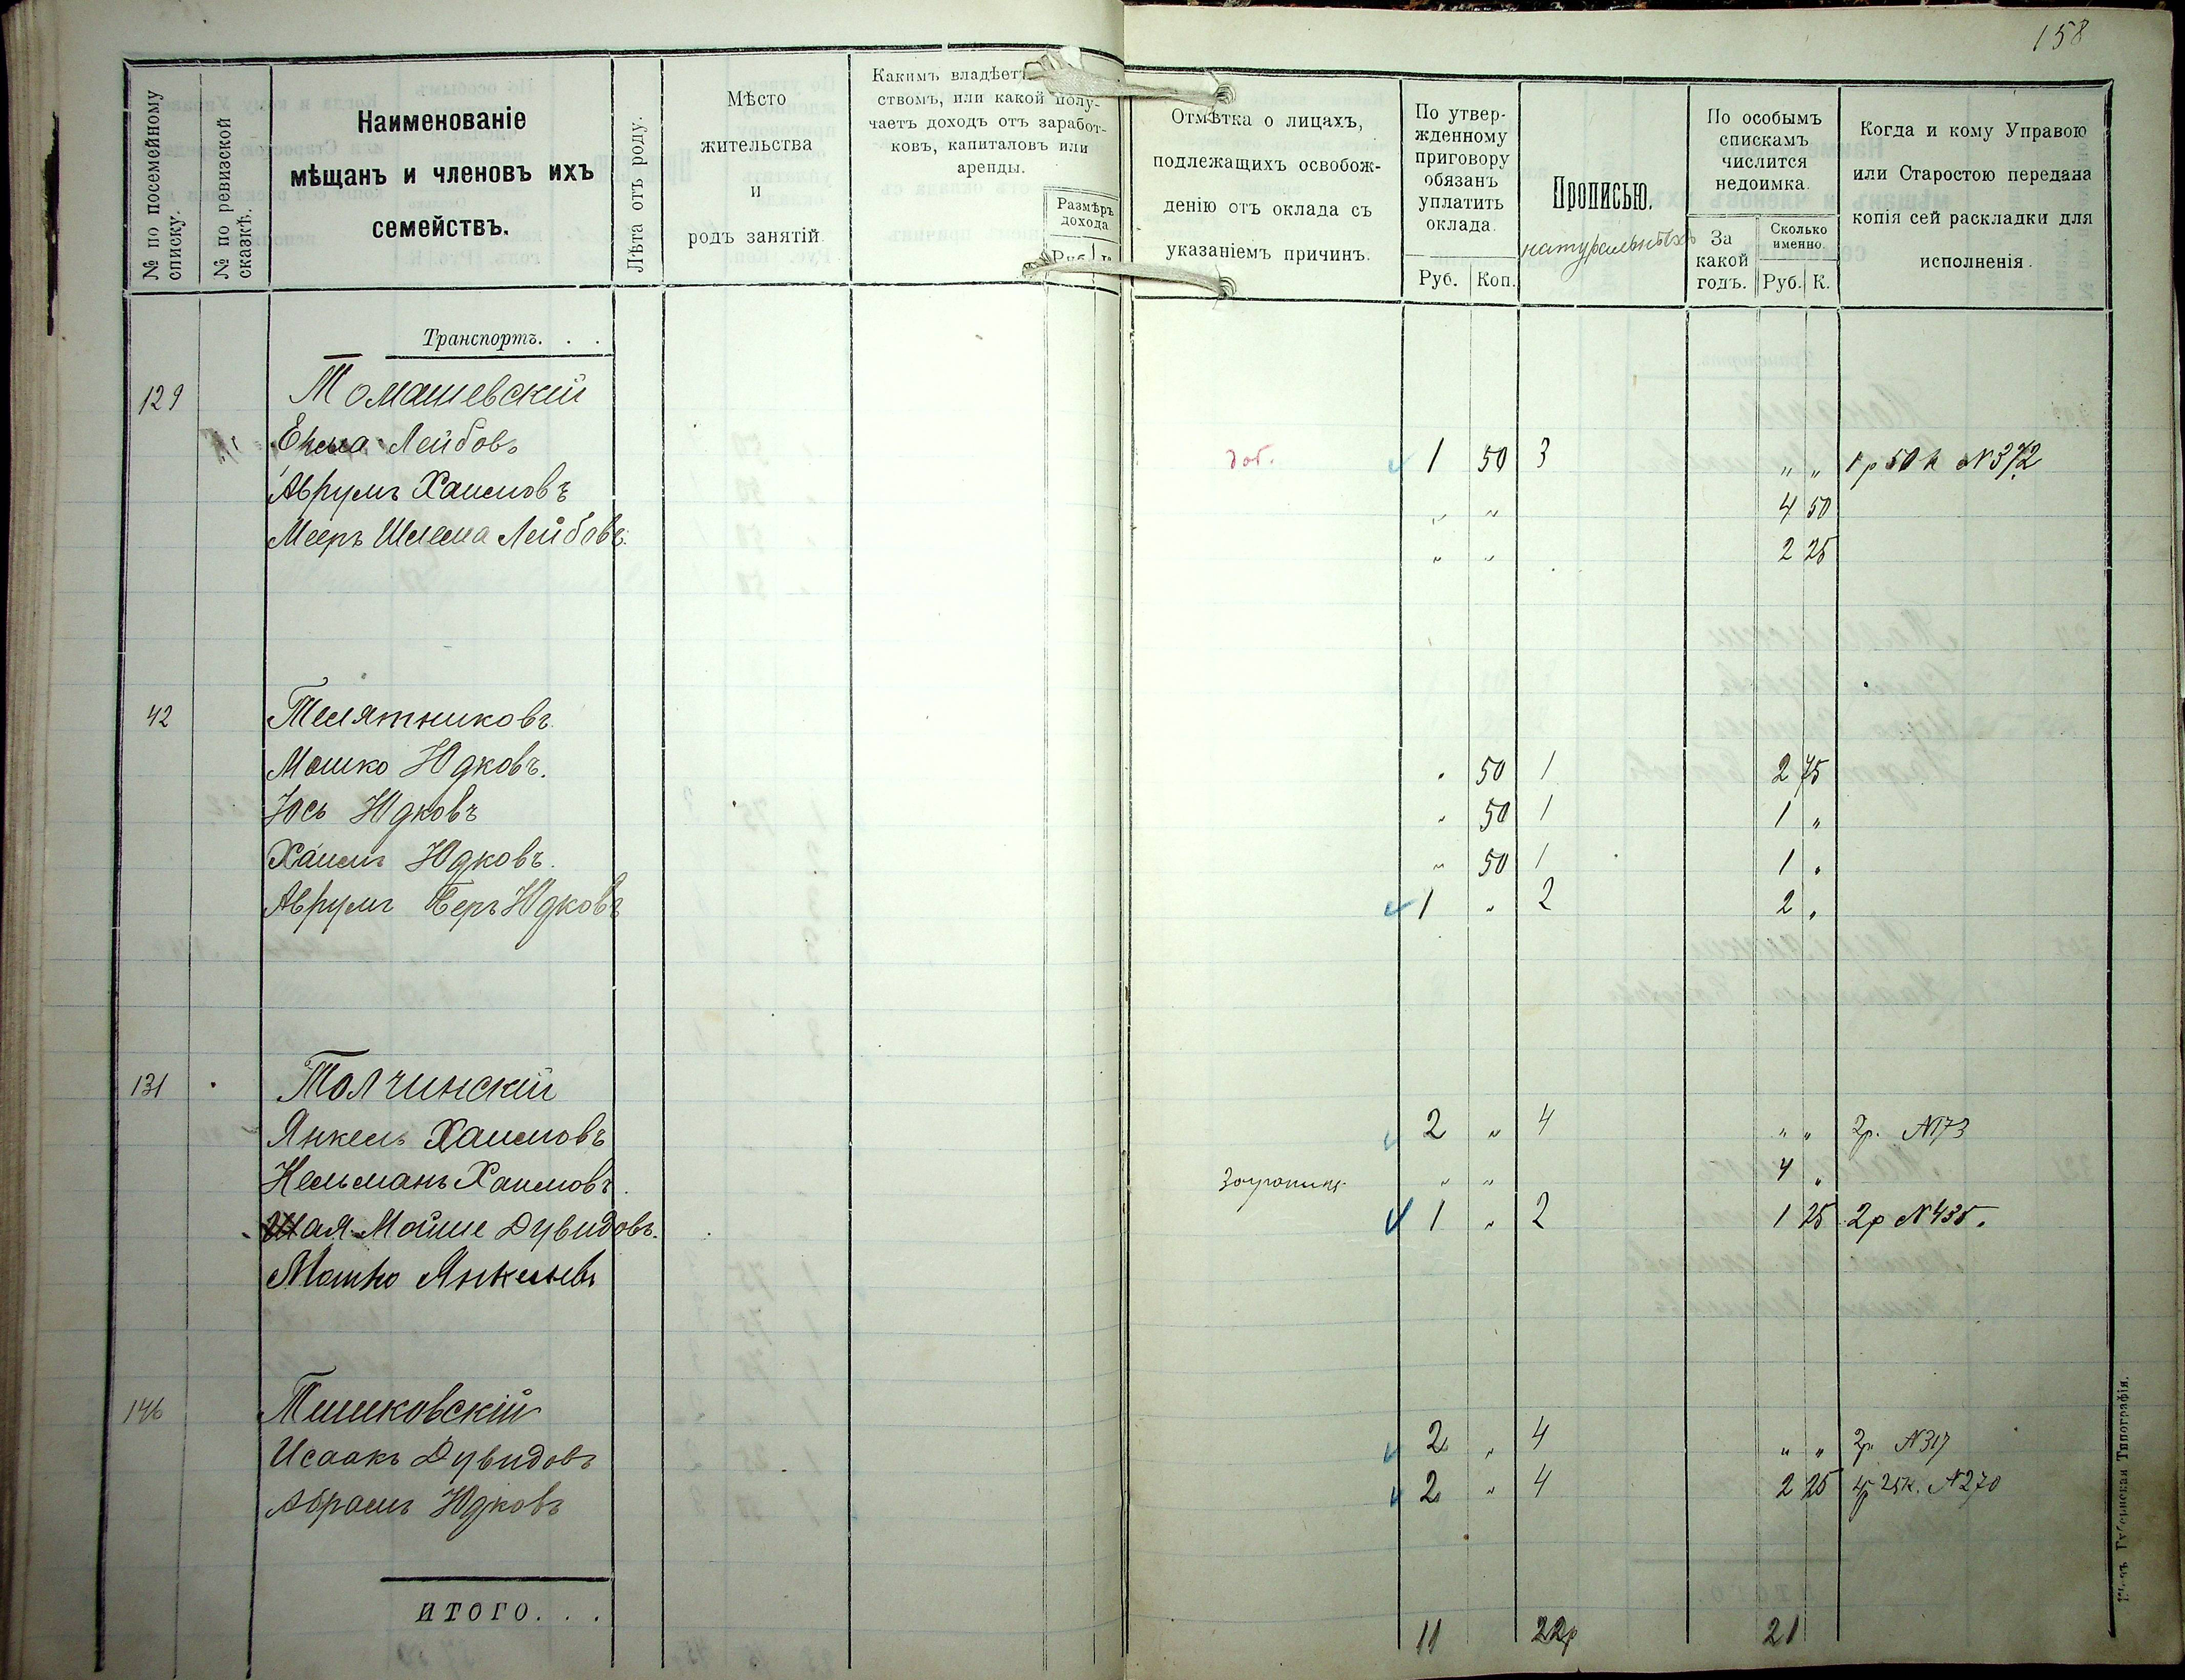 158
№ по посемейному списку.
№ по ревизской сказкѣ.
Наименованіе
мѣщанъ и членовъ ихъ
семействъ.
Лѣта отъ роду.
Мѣсто
жительства
и
родъ занятій.
Какимъ владѣетъ
ствомъ, или какой полу-
чаетъ доходъ отъ заработ-
ковъ, капиталовъ или
аренды.
Размѣръ
дохода.
Руб. К.
Отмѣтка о лицахъ,
подлежащихъ освобож-
денію отъ оклада съ
указаніемъ причинъ.
По утвер-
жденному
приговору
обязанъ
уплатить
оклада.
Руб. Коп.
Прописью.
натуральныхъ
По особымъ
спискамъ
числится
недоимка.
За
какой
годъ.
Сколько
именно.
Руб. К.
Когда и кому Управою
или Старостою передана
копія сей раскладки для
исполненія.
Транспортъ. . .
129 Томашевскій
Лейбовъ 1 50 3 " " 1 р 50 к №372
Аврумъ Хаимовъ " " 4 50
Мееръ Шлема Лейбовъ " " 2 25
42 Телятниковъ
Мошко Юдковъ. " 50 1 2 75
Іось Юдковъ " 50 1 1 "
Хаимъ Юдковъ. " 50 1 1 "
Аврумъ Беръ Юдковъ 1 " 2 2 "
131 Толчинскій
Янкель Хаимовъ 2 " 4 " " 2р. №173
Кельманъ Хаимовъ. " " 4 "
Шая-Мойше Дувидовъ. 1 " 2 1 25 2р №435.
Мошко Янкелевъ
146 Тишковскій
Исаакъ Дувидовъ 2 " 4 " " 2р. №317
Абрамъ Юдковъ 2 " 4 2 25 4р 25к. №270
ИТОГО. . . 11 22р 21
Губернская Типографія.